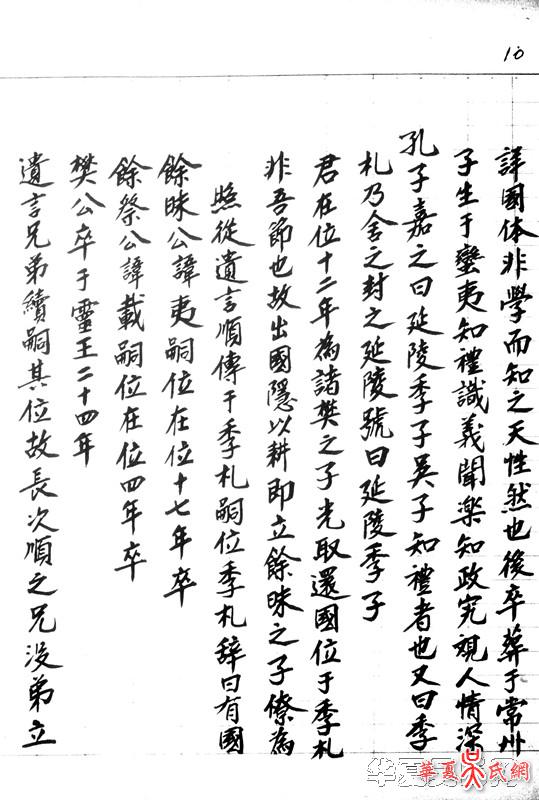 10
遺言兄弟續嗣其位故長次順之兄没弟立
樊公卒于靈王二十四年
餘祭公諱載嗣位在位四年卒
餘昧公諱夷嗣位在位十七年卒
照從遺言順傳于季札嗣位季札辞曰有國
非吾節也故出國隱以耕即立餘昧之子僚為
君在位十二年為諸樊之子光取還國位于季札
札乃舍之封之延陵號曰延陵季子
孔子嘉之曰延陵季子吳子知禮者也又曰季
子生于蠻夷知禮識義聞楽知政究視人情深
詳國体非學而知之天性然也後卒葬于常州
華夏吳氏網